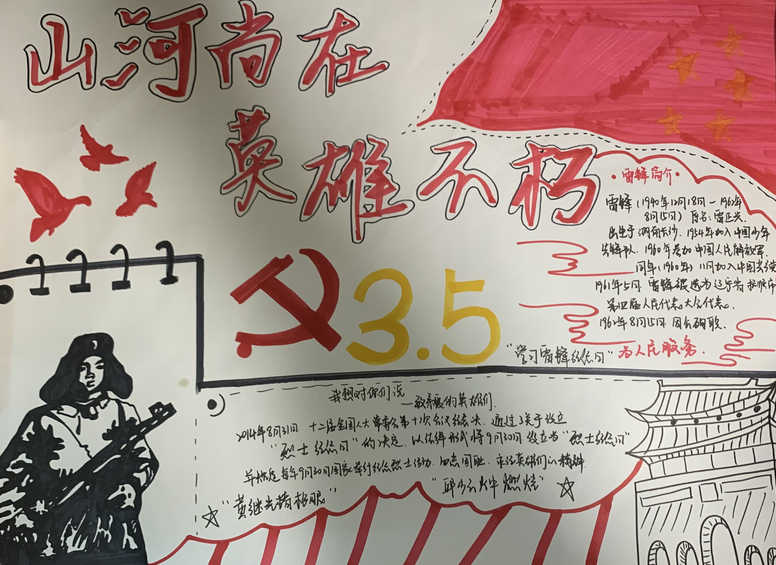 山河尚在
英雄不朽
·雷锋简介·
雷锋(1940年12月18日—1962年
8月15日)原名:雷正兴.
出生于:湖南长沙.1954年加入中国少年
先锋队.1960年参加中国人民解放军.
同年(1960年)11月加入中国共产
1961年5月 雷锋被选为辽宁省抚顺市
第四届人民代表大会代表.
1962年8月15日 因公殉职.
3.5
"学习雷锋纪念日"
为人民服务.
我想对你们说
—致亲爱的英雄们.
2014年8月31日 十二届全国人大常委会第十次会议表决,通过了关于设立
"烈士纪念日"的决定,以法律形式将9月30日设立为"烈士纪念日"
并规定每年9月30日国家举行纪念烈士活动,缅怀英雄们的精神
"黄继光堵枪眼"
"邱少云火中燃烧"